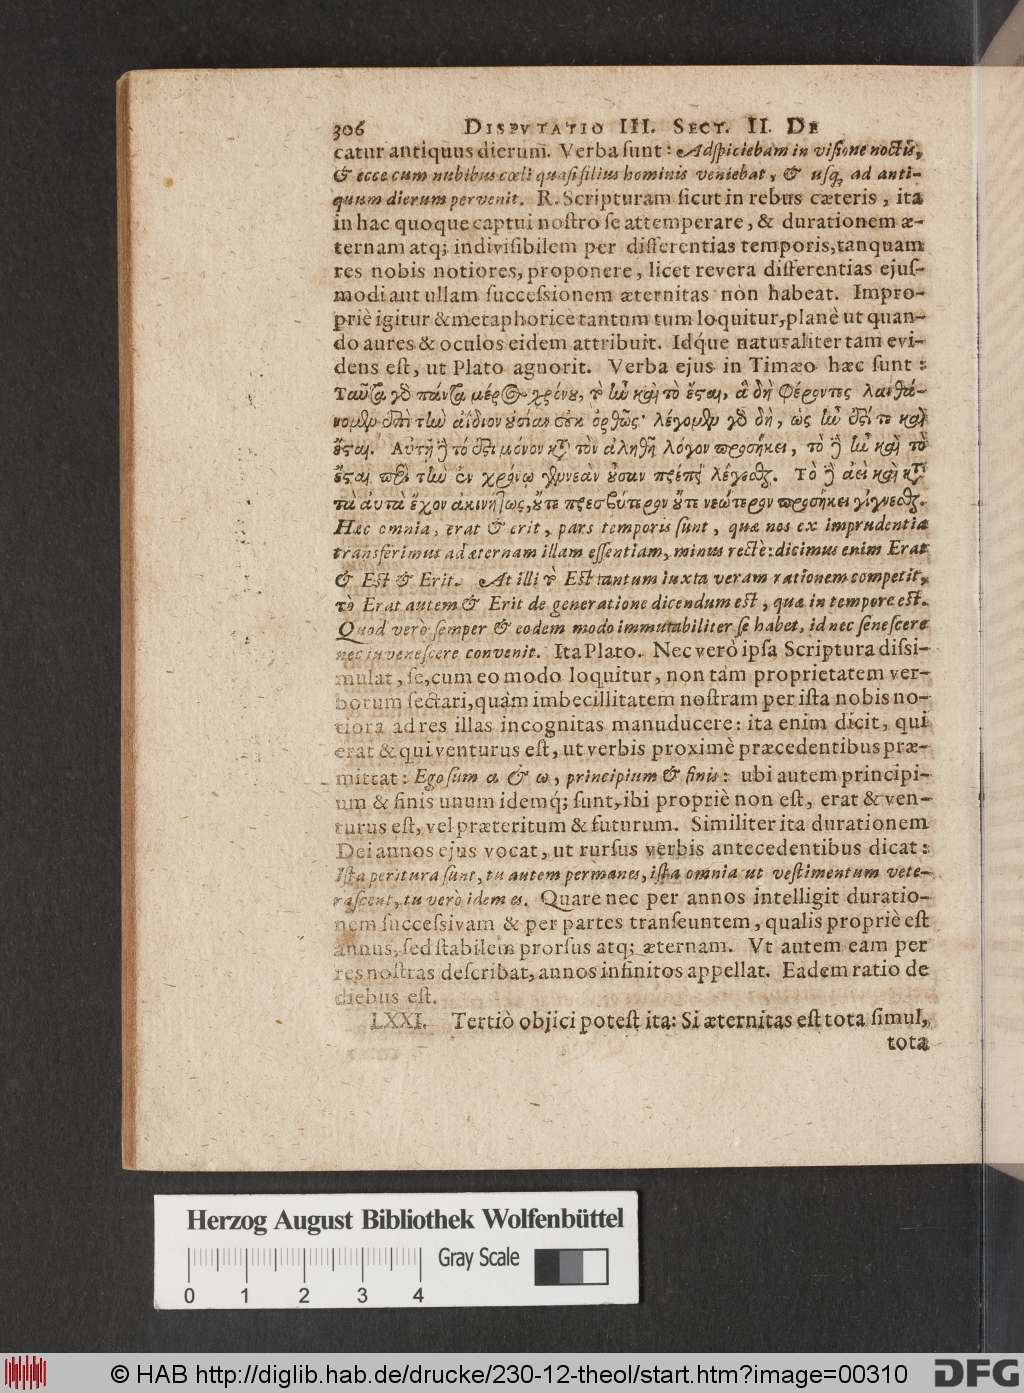 306 DISPVTATIO III. SECT. II. DE
catur antiquus dierum̃. Verba sunt: Adspiciebam in visione noctis,
& ecce cum nubibus cœli quasi filius hominis veniebat, & usq; ad anti-
quum dierum pervenit. R. Scripturam sicut in rebus cæteris, ita
in hac quoque captui nostro se attemperare, & durationem æ-
ternam atq; indivisibilem per differentias temporis, tanquam
res nobis notiores, proponere, licet revera differentias ejus-
modi aut ullam successionem æternitas nòn habeat. Impro-
priè igitur & metaphorice tantum tum loquitur, planè ut quan-
do aures & oculos eidem attribuit. Idq́ue naturaliter tam evi-
dens est, ut Plato agnorit. Verba ejus in Timæo hæc sunt:
Ταῦτα γὸ πάντα μέρη χρόνου, τὸ ἦν καὶ τὸ ἔσται, ἃ δὴ φέροντες λανθά-
νομεν ἐπὶ τὴν ἀΐδιον οὐσίαν οὐκ ὀρθῶς· λέγομεν γὸ δὴ, ὡς ἦν ἐστί τε καὶ
ἔσται. Αὐτῇ ἢ τὸ ἐστὶ μόνον κατὰ τὸν ἀληθῆ λόγον προσήκει, τὸ ἢ ἦν καὶ τὸ
ἔσται περὶ τὴν ἐν χρόνῳ γένεσιν οὖσαν πρέπει λέγεσθαι. Τὸ ἢ ἀεὶ καὶ κατὰ
τὰ αὐτὰ ἔχον ἀκινήτως, οὔτε πρεσβύτερον οὔτε νεώτερον προσήκει γίγνεσθαι.
Hæc omnia, erat & erit, pars temporis sunt, quæ nos ex imprudentia
transferimus ad æternam illam essentiam, minus rectè: dicimus enim Erat
& Est & Erit. At illi τὸ Est tantum iuxta veram rationem competit,
τὸ Erat autem & Erit de generatione dicendum est, quæ in tempore est.
Quod verò semper & eodem modo immutabiliter se habet, id nec senescere
nec iuvenescere convenit. Ita Plato. Nec verò ipsa Scriptura dissi-
mulat, se, cum eo modo loquitur, non tàm proprietatem ver-
borum sectari, quàm imbecillitatem nostram per ista nobis no-
tiora ad res illas incognitas manuducere: ita enim dicit, qui
erat & qui venturus est, ut verbis proximè præcedentibus præ-
mittat: Ego sum α & ω, principium & finis: ubi autem principi-
um & finis unum idemq́; sunt, ibi propriè non est, erat & ven-
turus est, vel præteritum & futurum. Similiter ita durationem
Dei annos ejus vocat, ut rursus verbis antecedentibus dicat:
Ista peritura sunt, tu autem permanes, ista omnia ut vestimentum vete-
rascent, tu verò idem es. Quare nec per annos intelligit duratio-
nem successivam & per partes transeuntem, qualis propriè est
annus, sed stabilem prorsus atq; æternam. Vt autem eam per
res nostras describat, annos infinitos appellat. Eadem ratio de
diebus est.
LXXI. Tertiò objici potest ita: Si æternitas est tota simul,
tota
Herzog August Bibliothek Wolfenbüttel
Gray Scale
0 1 2 3 4
© HAB http://diglib.hab.de/drucke/230-12-theol/start.htm?image=00310
DFG